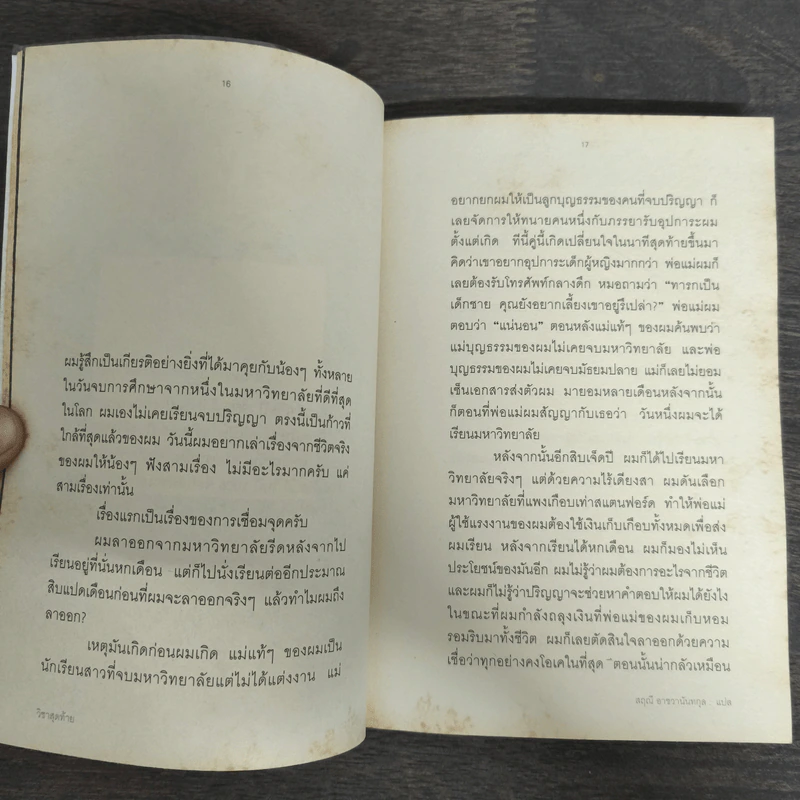 16
ผมรู้สึกเป็นเกียรติอย่างยิ่งที่ได้มาคุยกับน้องๆ ทั้งหลาย
ในวันจบการศึกษาจากหนึ่งในมหาวิทยาลัยที่ดีที่สุด
ในโลก ผมเองไม่เคยเรียนจบปริญญา ตรงนี้เป็นก้าวที่
ใกล้ที่สุดแล้วของผม วันนี้ผมอยากเล่าเรื่องจากชีวิตจริง
ของผมให้น้องๆ ฟังสามเรื่อง ไม่มีอะไรมากครับ แค่
สามเรื่องเท่านั้น
เรื่องแรกเป็นเรื่องของการเชื่อมจุดครับ
ผมลาออกจากมหาวิทยาลัยรีดหลังจากไป
เรียนอยู่ที่นั่นหกเดือน แต่ก็ไปนั่งเรียนต่ออีกประมาณ
สิบแปดเดือนก่อนที่ผมจะลาออกจริงๆ แล้วทำไมผมถึง
ลาออก?
เหตุมันเกิดก่อนผมเกิด แม่แท้ๆ ของผมเป็น
นักเรียนสาวที่จบมหาวิทยาลัยแต่ไม่ได้แต่งงาน แม่
วิชาสุดท้าย
17
อยากยกผมให้เป็นลูกบุญธรรมของคนที่จบปริญญา ก็
เลยจัดการให้ทนายคนหนึ่งกับภรรยารับอุปการะผม
ตั้งแต่เกิด ทีนี้คู่นี้เกิดเปลี่ยนใจในนาทีสุดท้ายขึ้นมา
คิดว่าเขาอยากอุปการะเด็กผู้หญิงมากกว่า พ่อแม่ผมก็
เลยต้องรับโทรศัพท์กลางดึก หมอถามว่า “ทารกเป็น
เด็กชาย คุณยังอยากเลี้ยงเขาอยู่รึเปล่า?” พ่อแม่ผม
ตอบว่า “แน่นอน” ตอนหลังแม่แท้ๆ ของผมค้นพบว่า
แม่บุญธรรมของผมไม่เคยจบมหาวิทยาลัย และพ่อ
บุญธรรมของผมไม่เคยจบมัธยมปลาย แม่ก็เลยไม่ยอม
เซ็นเอกสารส่งตัวผม มายอมหลายเดือนหลังจากนั้น
ก็ตอนที่พ่อแม่ผมสัญญากับเธอว่า วันหนึ่งผมจะได้
เรียนมหาวิทยาลัย
หลังจากนั้นอีกสิบเจ็ดปี ผมก็ได้ไปเรียนมหา
วิทยาลัยจริงๆ แต่ด้วยความไร้เดียงสา ผมดันเลือก
มหาวิทยาลัยที่แพงเกือบเท่าสแตนฟอร์ด ทำให้พ่อแม่
ผู้ใช้แรงงานของผมต้องใช้เงินเก็บเกือบทั้งหมดเพื่อส่ง
ผมเรียน หลังจากเรียนได้หกเดือน ผมก็มองไม่เห็น
ประโยชน์ของมันอีก ผมไม่รู้ว่าผมต้องการอะไรจากชีวิต
และผมก็ไม่รู้ว่าปริญญาจะช่วยหาคำตอบให้ผมได้ยังไง
ในขณะที่ผมกำลังถลุงเงินที่พ่อแม่ของผมเก็บหอม
รอมริบมาทั้งชีวิต ผมก็เลยตัดสินใจลาออกด้วยความ
เชื่อว่าทุกอย่างคงโอเคในที่สุด ตอนนั้นน่ากลัวเหมือน
สฤณี อาชวานันทกุล แปล